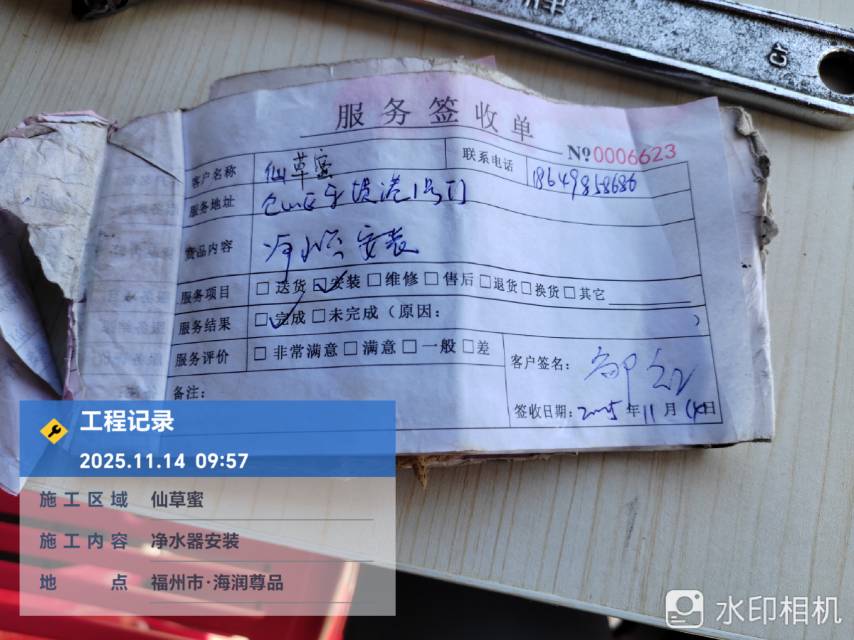 服务签收单
№0006623
客户名称 仙草蜜 联系电话 18649858686
服务地址
货品内容 安装
服务项目 □送货 ☑安装 □维修 □售后 □退货 □换货 □其它
服务结果 ☑完成 □未完成(原因: )
服务评价 □非常满意 □满意 □一般 □差
客户签名:
备注:
签收日期: 2025年11月14日
工程记录
2025.11.14 09:57
施工区域 仙草蜜
施工内容 净水器安装
地点 福州市·海润尊品
水印相机